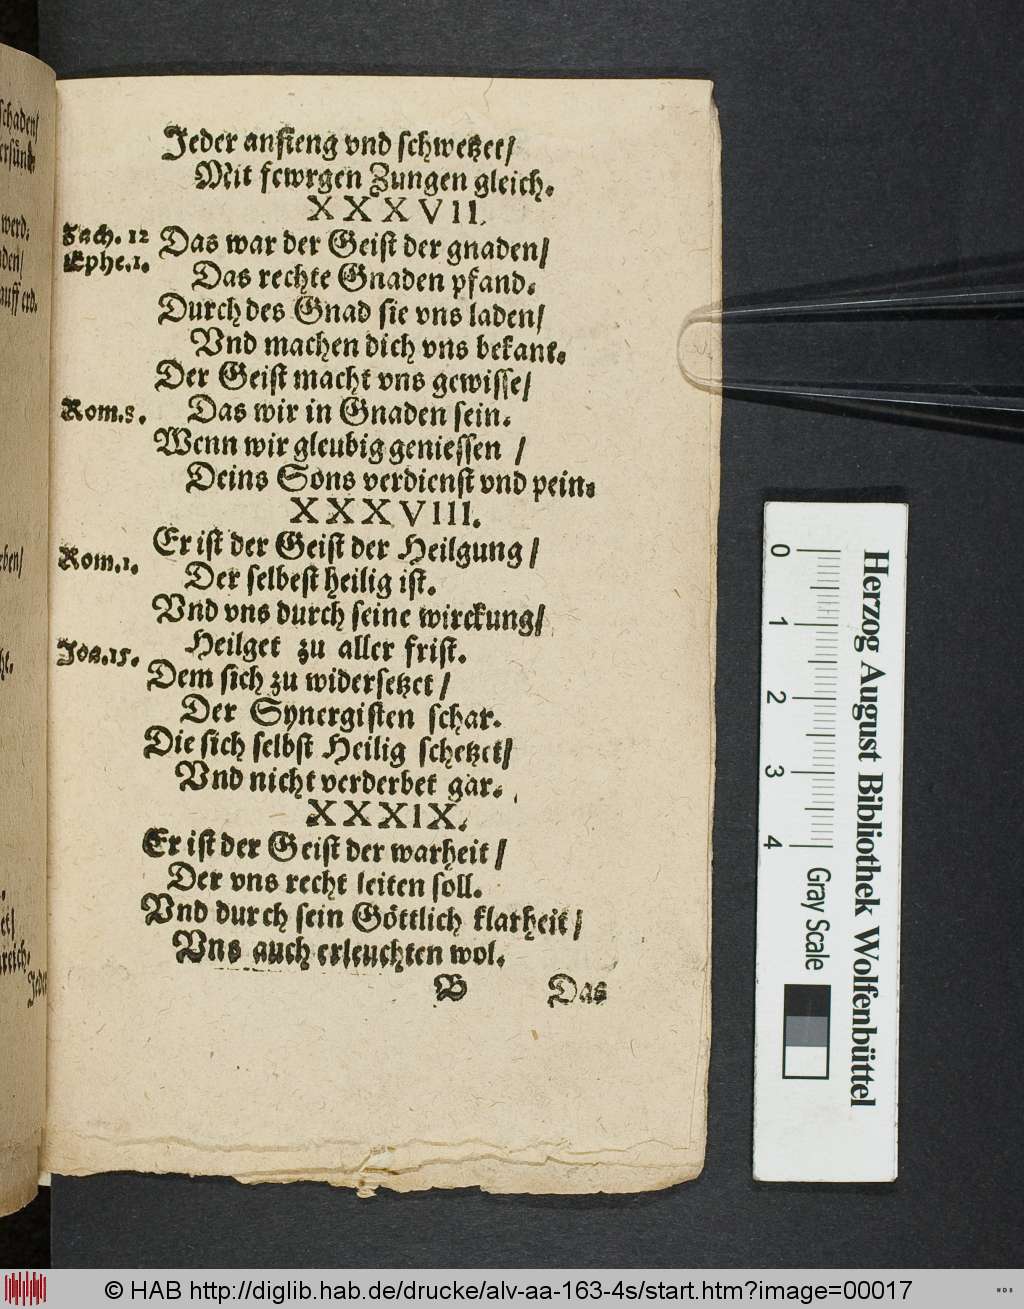 Jeder anfieng vnd schwetzet/
Mit fewrgen Zungen gleich.
XXXVII.
Zach. 12
Ephe.1.
Das war der Geist der gnaden/
Das rechte Gnaden pfand.
Durch des Gnad sie vns laden/
Vnd machen dich vns bekant.
Der Geist macht vns gewisse/
Rom.8.
Das wir in Gnaden sein.
Wenn wir gleubig geniessen /
Deins Sons verdienst vnd pein.
XXXVIII.
Er ist der Geist der Heilgung /
Rom.1.
Der selbest heilig ist.
Vnd vns durch seine wirckung/
Heilget zu aller frist.
Joa.15.
Dem sich zu widersetzet /
Der Synergisten schar.
Die sich selbst Heilig schetzet/
Vnd nicht verderbet gar.
XXXIX.
Er ist der Geist der warheit /
Der vns recht leiten soll.
Vnd durch sein Göttlich klarheit /
Vns auch erleuchten wol.
B Das
schaden/
werd.
auff erd.
reich.
Jeder
Herzog August Bibliothek Wolfenbüttel
0 1 2 3 4
Gray Scale
© HAB http://diglib.hab.de/drucke/alv-aa-163-4s/start.htm?image=00017